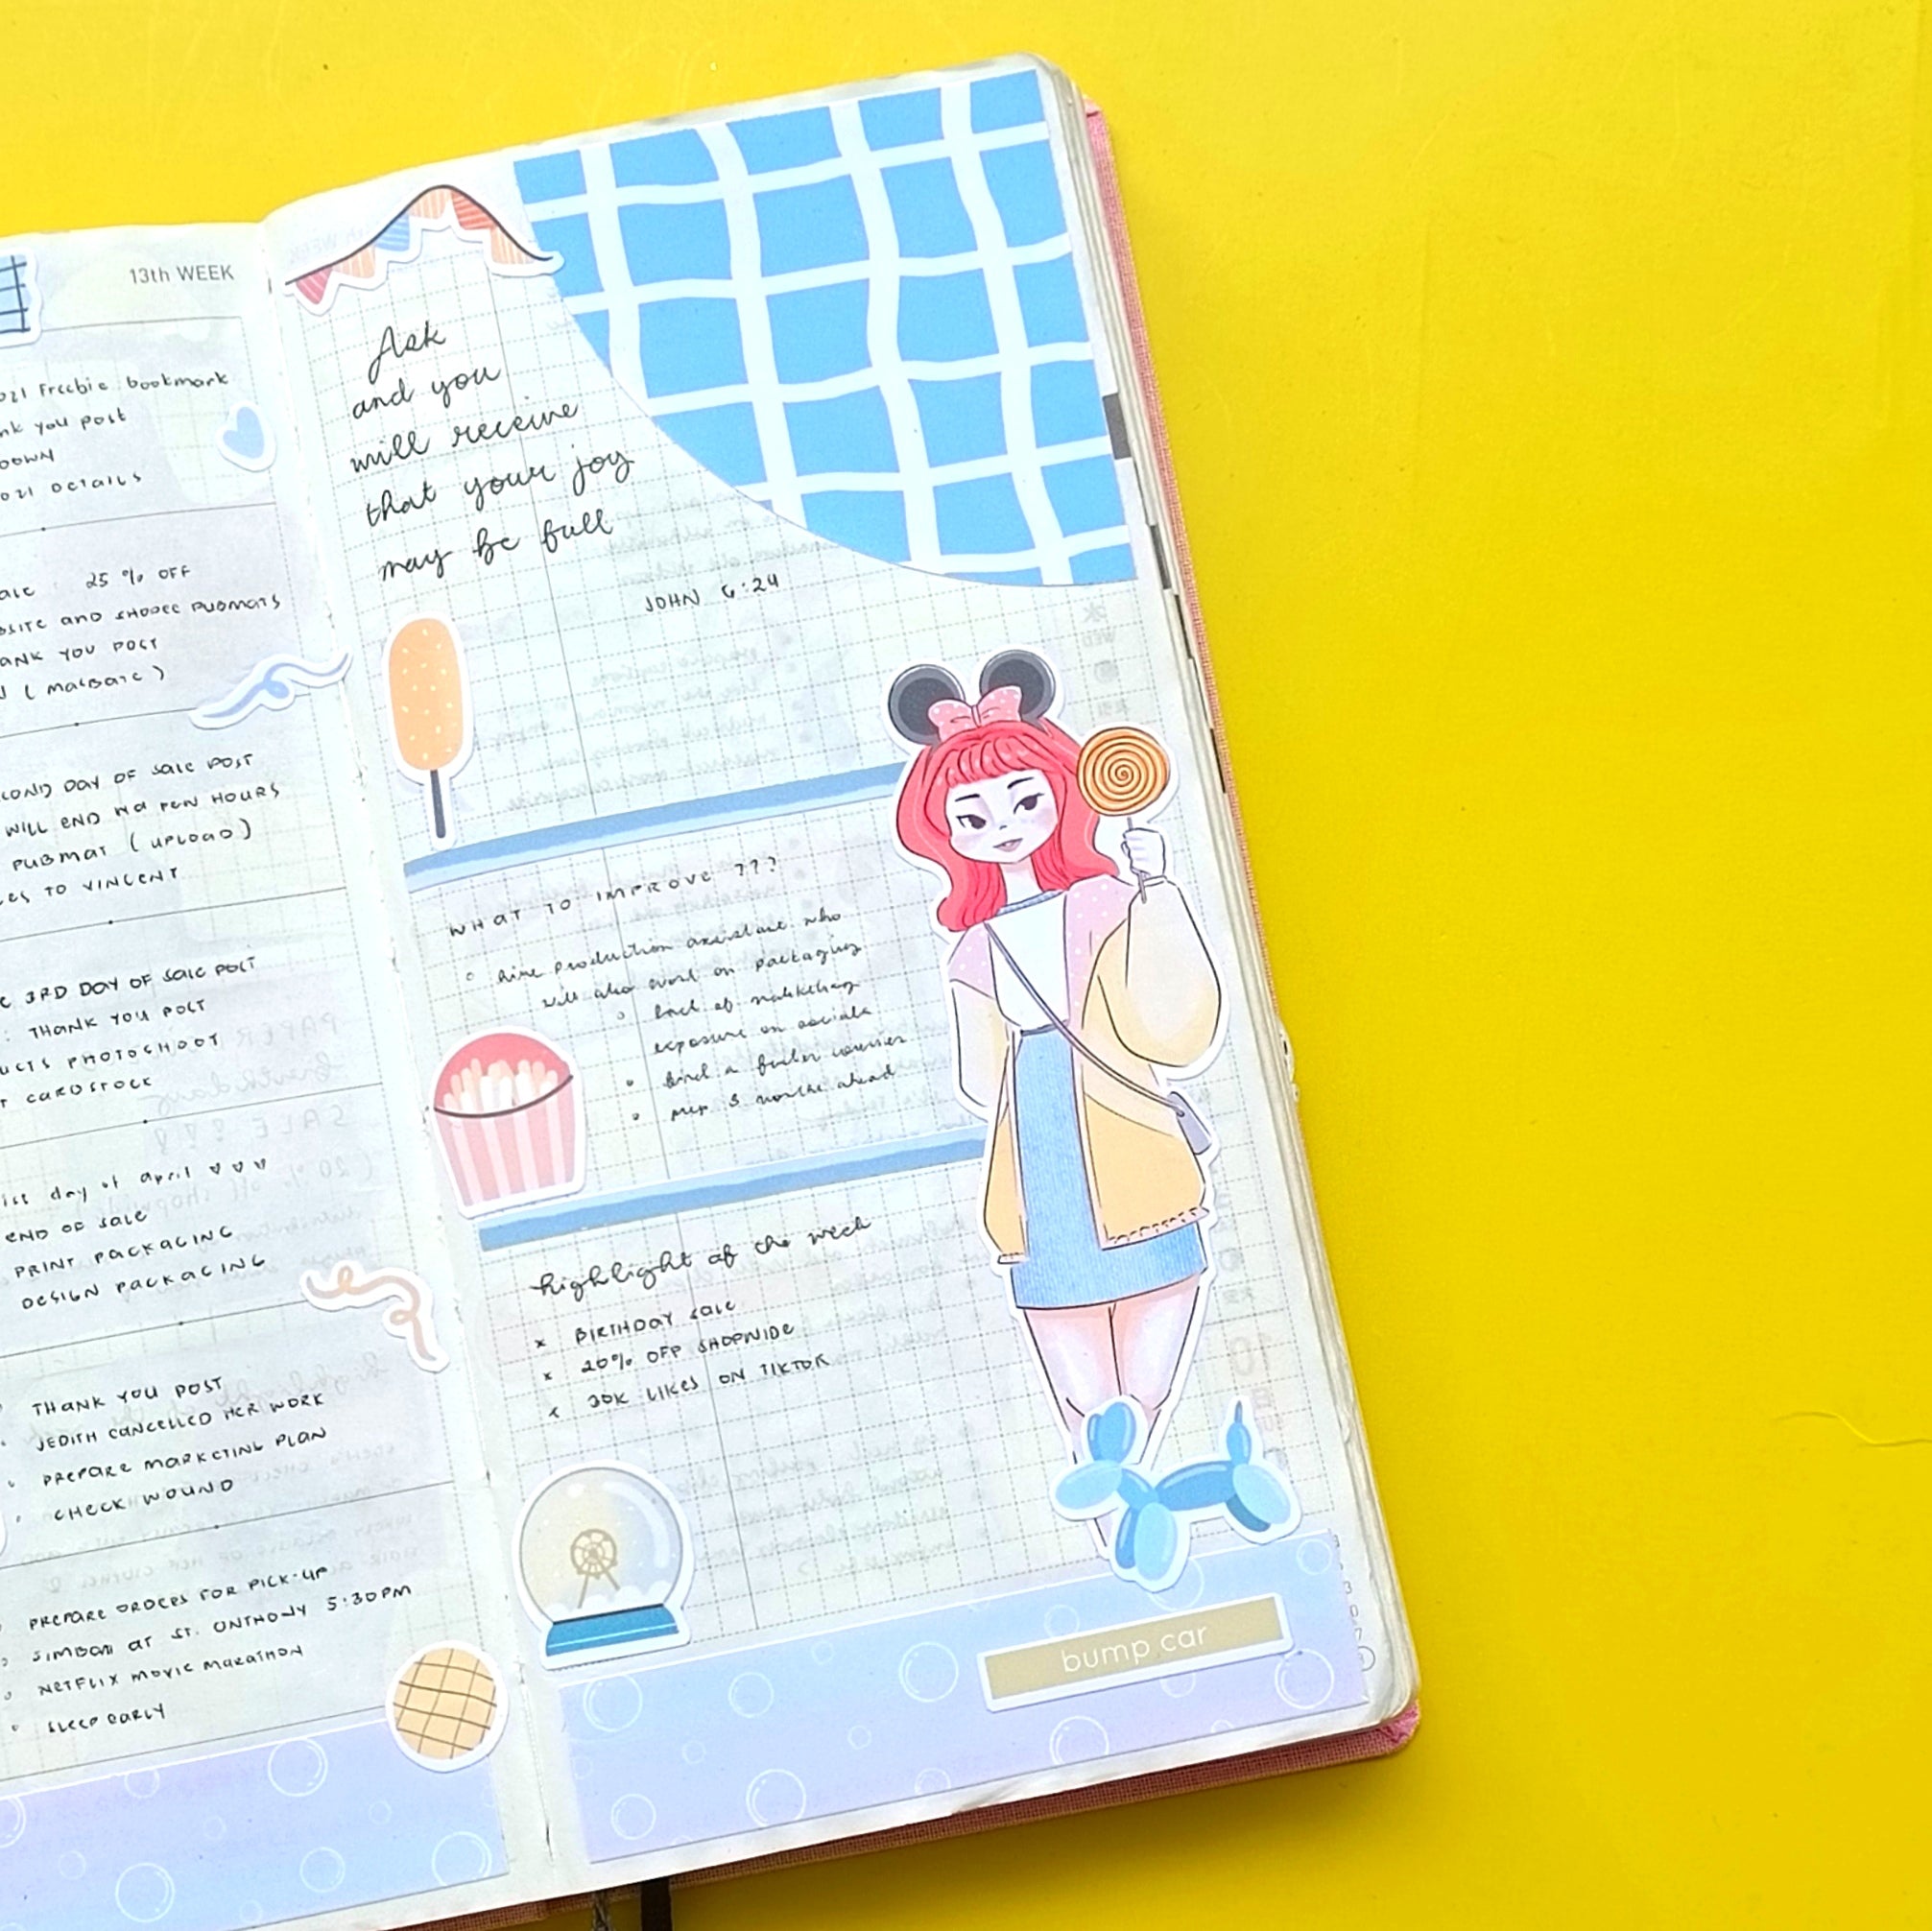 13th WEEK
021 Freebie bookmark
nk you post
DOWN
021 DETAILS
ale : 25 % OFF
bsite and shopee pubmats
ank you post
(maybank)
COND DAY OF sale POST
WILL END in a FEW HOURS
PUBmat (UPLOAD)
es TO VINCENT
3RD DAY OF sale POST
: THANK YOU POST
ucts PHOTOSHOOT
T CARDSTOCK
1st day of april ♡ ♡ ♡
END OF sale
PRINT PACKAGING
DESIGN PACKAGING
THANK YOU POST
JEDITH CANCELLED HER WORK
PREPARE MARKETING PLAN
CHECK WOUND
PREPARE ORDERS FOR PICK-UP
SIMBAH AT ST. ANTHONY 5:30PM
NETFLIX MOVIE MARATHON
SLEEP EARLY
Ask
and you
will receive
that your joy
may be full
JOHN 6:24
WHAT TO IMPROVE ???
hire production assistant who
will also work on packaging
lack of marketing
exposure on socials
find a faster courier
prep 3 months ahead
highlight of the week
x BIRTHDAY sale
x 20% OFF SHOPWIDE
x 30K LIKES ON TIKTOK
bump car